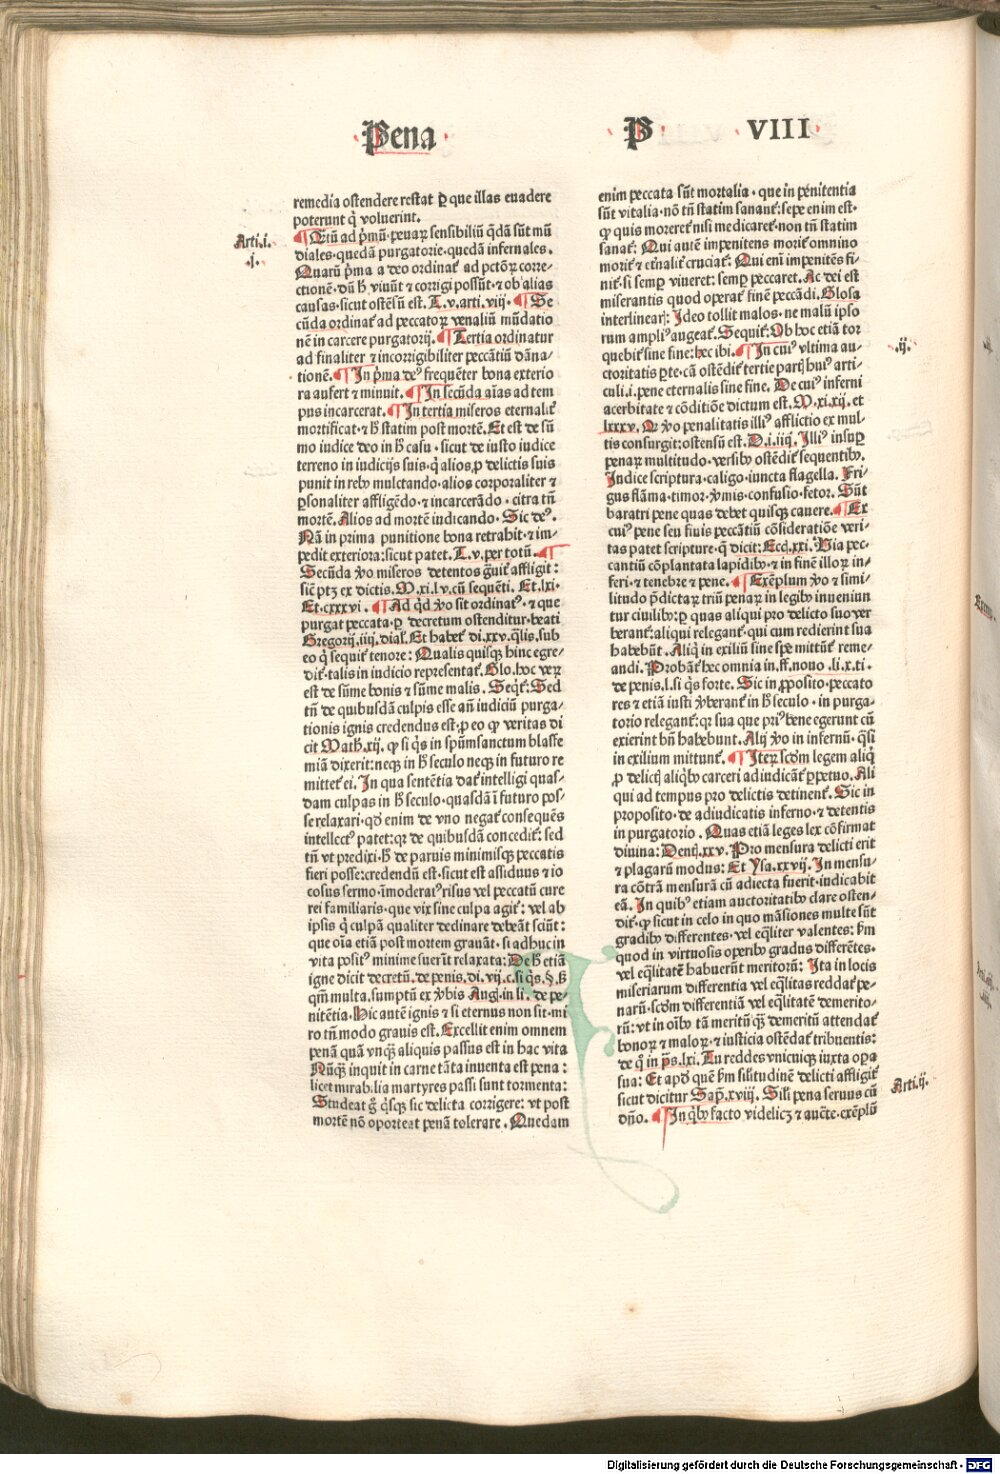 Pena
P VIII
remedia ostendere restat ꝑ que illas euadere
poterunt q̇ voluerint.
Arti.i.
.j.
¶ Triũ ad p̃mũ. penaꝝ sensibiliũ q̃dã sũt mũ
diales. quedã purgatorie. quedã infernales.
Quarũ p̃ma a deo ordinat᷑ ad pctõꝝ corre-
ctionẽ. dũ h̃ viuũt ⁊ corrigi possũt. ⁊ ob alias
causas. sicut ostẽsũ est. T.v.arti.viij. ¶ Se
cũda ordinat᷑ ad peccatoꝝ venaliũ mũdatio
nẽ in carcere purgatorij. ¶ Tertia ordinatur
ad finaliter ⁊ incorrigibiliter peccãtiũ dãna-
tionẽ. ¶ In p̃ma deꝰ frequẽter bona exterio
ra aufert ⁊ minuit. ¶ In secũda aĩas ad tem
pus incarcerat. ¶ In tertia miseros eternalit᷑
mortificat. ⁊ h̃ statim post mortẽ. Et est de sũ
mo iudice deo in h̃ casu. sicut de iusto iudice
terreno in iudicijs suis. q̇ alios ꝓ delictis suis
punit in rebꝰ mulctando. alios corporaliter ⁊
ꝑsonaliter affligẽdo. ⁊ incarcerãdo. citra tñ
mortẽ. Alios ad mortẽ iudicando. Sic deꝰ.
Nã in prima punitione bona retrahit. ⁊ im-
pedit exteriora: sicut patet. T.v. per totũ. ¶
Secũda ꝟo miseros detentos g̃uit᷑ affligit:
sic̃ ptꝫ ex dictis. M.xi.lv.cũ sequẽti. Et.lxi.
Et.cxxxvi. ¶ Ad q̃d ꝟo sit ordinatꝰ. ⁊ que
purgat peccata. ꝑ decretum ostenditur. beati
Gregorij.iiij.dial. Et habet᷑ di.xxv.q̃lis. sub
eo q̇ sequit᷑ tenore: Qualis quisqꝫ hinc egre-
dit᷑. talis in iudicio representat᷑. Glo. hoc veꝝ
est de sũme bonis ⁊ sũme malis. Seqt᷑: Sed
tñ de quibusdã culpis esse añ iudiciũ purga-
tionis ignis credendus est. ꝓ eo ꝙ veritas di
cit Math.xij. ꝙ si q̇s in spũmsanctum blasfe
miã dixerit: neqꝫ in h̃ seculo neqꝫ in futuro re
mittet᷑ ei. In qua sentẽtia dat᷑ intelligi quas-
dam culpas in h̃ seculo. quasdã ĩ futuro pos-
se relaxari. qd̃ enim de vno negat᷑ consequẽs
intellectꝰ patet: qꝛ de quibusdã concedit᷑: sed
tñ vt predixi. h̃ de paruis minimisqꝫ peccatis
fieri posse: credendũ est. sicut est assiduus ⁊ io
cosus sermo. ĩmoderatꝰ risus vel peccatũ cure
rei familiaris. que vix sine culpa agit᷑: vel ab
ipsis q̇ culpã qualiter declinare debeãt sciũt:
que oĩa etiã post mortem grauãt. si adhuc in
vita positꝰ minime fuerĩt relaxata: De h̃ etiã
igne dicit decretũ. de penis.di.vij.c.si q̇s.§.ß
qm̃ multa. sumptũ ex ꝟbis Aug. in li. de pe-
nitẽtia. Hic autẽ ignis ⁊ si eternus non sit. mi
ro tñ modo grauis est. Excellit enim omnem
penã quã vnqꝫ aliquis passus est in hac vita
Nũqꝫ inquit in carne tãta inuenta est pena:
licet mirabilia martyres passi sunt tormenta:
Studeat g̃ q̇sqꝫ sic delicta corrigere: vt post
mortẽ nõ oporteat penã tolerare. Quedam
enim peccata sũt mortalia. que in penitentia
sũt vitalia. nõ tñ statim sanant᷑: sepe enim est.
ꝙ quis moreret᷑ nisi medicaret᷑. non tñ statim
sanat᷑: Qui autẽ impenitens morit᷑ omnino
morit᷑ ⁊ et̃nalit᷑ cruciat᷑: Qui eni impenitẽs fi-
nit᷑. si semꝑ viueret: semꝑ peccaret. Ac dei est
miserantis quod operat᷑ finẽ peccãdi. Glosa
interlineari: Ideo tollit malos. ne malũ ipso
rum ampliꝰ augeat᷑. Sequit᷑: Ob hoc etiã tor
quebit᷑ sine fine: hec ibi. ¶ In cuiꝰ vltima au-
.ij.
ctoritatis ꝑte. cã ostẽdit᷑ tertie partꝭ huiꝰ arti-
culi.i. pene eternalis sine fine. De cuiꝰ inferni
acerbitate ⁊ cõditiõe dictum est. M.xi.xij. et
lxxxv. Q ꝟo penalitatis illiꝰ afflictio ex mul-
tis consurgit: ostensũ est. D.i.iiij. Illiꝰ insuꝑ
penaꝝ multitudo. versibꝰ ostẽdit᷑ sequentibꝰ.
Iudice scriptura. caligo. iuncta flagella. Fri-
gus flãma. timor. ꝟmis. confusio. fetor. Sũt
baratri pene quas debet quisqꝫ cauere. ¶ Ex
cuiꝰ pene seu finis peccãtiũ cõsideratiõe veri-
tas patet scripture. q̃ dicit: Eccl.xxi. Via pec-
cantiũ cõplantata lapidibꝰ. ⁊ in finẽ illoꝝ in-
feri. ⁊ tenebre ⁊ pene. ¶ Exẽplum ꝟo ⁊ simi-
litudo p̃dictaꝝ triũ penaꝝ in legibꝰ inueniun
tur ciuilibꝰ: ꝑ quas aliqui pro delicto suo ver
berant᷑: aliqui relegant᷑. qui cum redierint sua
habebũt. Aliq̇ in exiliũ sine spe mittũt᷑ reme-
andi. Probãt᷑ hec omnia in.ff.nouo.li.x.ti.
de penis.l.si q̇s forte. Sic in ꝓposito. peccato
res ⁊ etiã iusti ꝟberant᷑ in h̃ seculo. in purga-
torio relegant᷑: qꝛ sua que priꝰ bene egerunt cũ
exierint bñ habebunt. Alij ꝟo in infernũ. q̃si
in exilium mittunt᷑. ¶ Iteꝝ scd̃m legem aliq̇
ꝓ delictꝭ aliqbꝰ carceri adiudicãt᷑ ꝑpetuo. Ali
qui ad tempus pro delictis detinent᷑. Sic in
proposito. de adiudicatis inferno. ⁊ detentis
in purgatorio. Quas etiã leges lex cõfirmat
diuina: Deut.xxv. Pro mensura delicti erit
⁊ plagarũ modus: Et Ysa.xxvij. In mensu-
ra cõtrã mensurã cũ adiecta fuerit. iudicabit
eã. In quibꝰ etiam auctoritatibꝰ clare osten-
dit᷑. ꝙ sicut in celo in quo mãsiones multe sũt
gradibꝰ differentes. vel eq̃liter valentes: ẜm
quod in virtuosis operibꝰ gradus differẽtes.
vel eq̃litatẽ habuerũt meritorũ: Ita in locis
miseriarum differentia vel eq̃litas reddat᷑ pe-
narũ. scd̃m differentiã vel eq̃litatẽ demerito-
rũ: vt in oĩbꝰ tã meritũ qꝫ demeritũ attendat᷑
bonoꝝ ⁊ maloꝝ. ⁊ iusticia ostẽdat᷑ tribuentis:
de q̇ in p̃s.lxi. Tu reddes vnicuiqꝫ iuxta oꝑa
sua: Et apd̃ quẽ ẜm silitudinẽ delicti affligit᷑
sicut dicitur Sap.xviij. Sili pena seruus cũ
Arti.ij.
dño. ¶ In qbꝰ facto videlicꝫ ⁊ aucte. exẽplũ
Digitalisierung gefördert durch die Deutsche Forschungsgemeinschaft - DFG